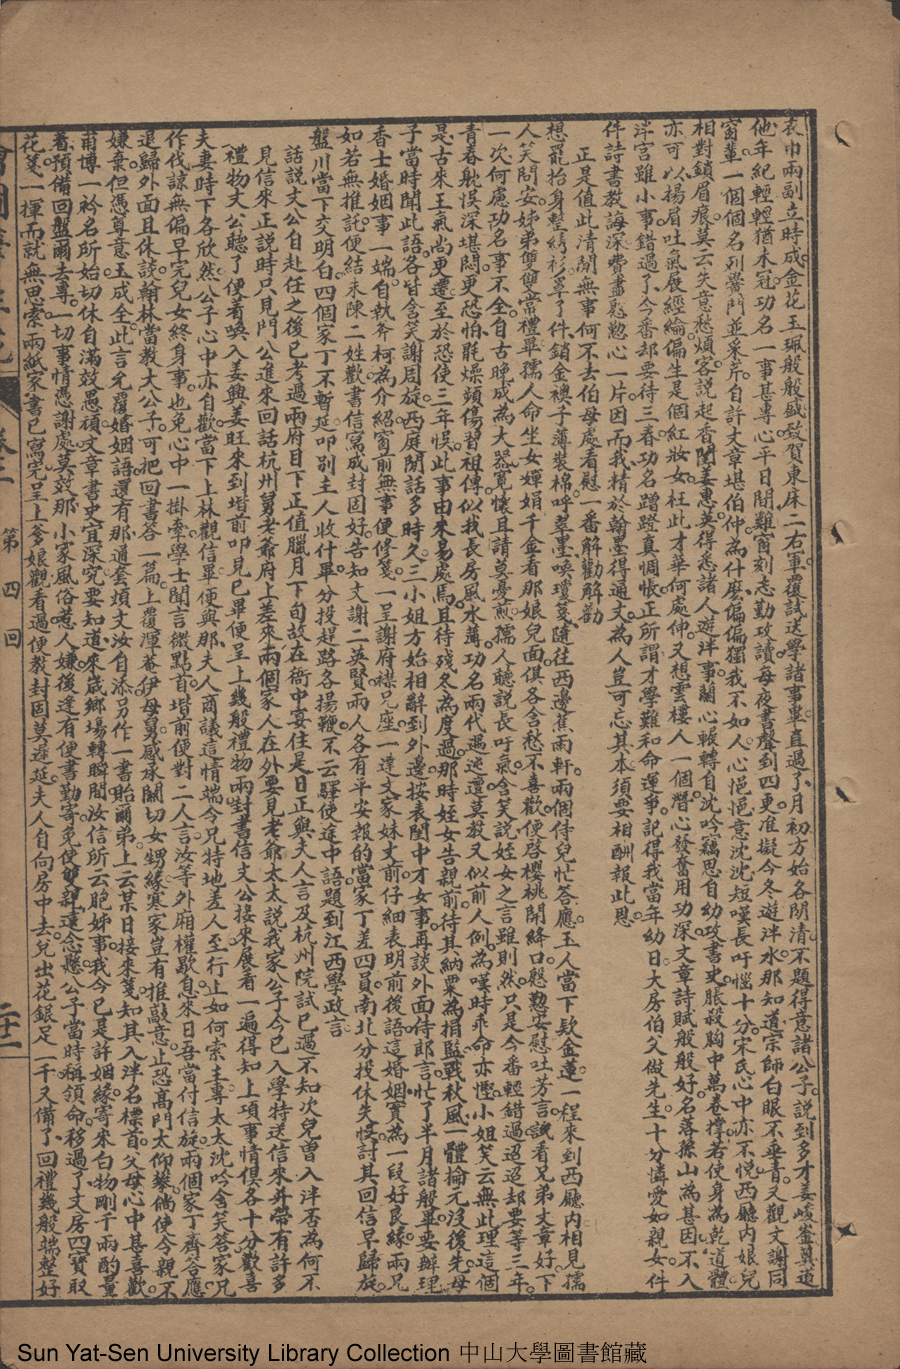 衣巾兩副立時成金花玉珮般般盛致賀東床二右軍覆試送學諸事畢直過了月初方始各閉清不題得意諸公子說到多才姜峻崟異道
他年紀輕輕猶未冠功名一事甚專心平日閉難窗刻志勤攻讀每夜書聲到四更准擬今冬遊泮水那知道宗師白眼不垂青又觀文謝同
窗輩一個個名列黌門並采芹自許文章堪伯仲為什麽偏偏獨我不如人心悒悒意沈沈短嘆長吁惱十分宋民心中亦不悦西廳內娘兒
相對鎖眉痕莫云失意愁煩客說起香閨姜惠英得悉諸人遊泮事蘭心輾轉自沈吟竊思自幼攻書史脹殺胸中萬卷撑若使身為乾道體
亦可以揚眉吐氣展經綸偏生是個紅妝女枉此才華何處伸又想雲樓人一個潛心發奮用功深文章詩賦般般好名落孫山為甚因不入
泮宮雖小事錯過了今番却要待三春功名蹭蹬真惆悵正所謂才學難和命運爭記得我當年幼日大房伯父做先生十分憐愛如親女件
件詩書教誨深費盡慇懃心一片因而我精於翰墨得通文為人豈可忘其本須要相酬報此恩
正是值此清閒無事何不去伯母處看慰一番解勸解勸
想罷抬身整綉衫罩了件銷金襖子薄裝棉呼翠墨喚瓊箋隨往西邊蕉雨軒兩個侍兒忙答應玉人當下欵金蓮一程來到西廳內相見孺
人笑問安姊弟雙雙常禮畢孺人命坐女嬋娟千金看那娘兒面俱各含愁不喜歡便啓櫻桃開絳口慇懃安慰吐芳言試看兄弟文章好下
一次何慮功名事不全自古晚成為大器寛懷且請莫憂煎孺人聽說長吁氣含笑說姪女之言雖則然只是今番輕錯過迢迢却要等三年
青春躭悞深堪悶更恐怕毷燥頗傷習祖傳似我長房風水薄功名兩代遇迍邅莫教又似前人例為嘆時乖命亦慳小姐笑云無此理這個
是古來王氣尚更遷至於恐使三年悞此事由來易處焉且待殘冬為度過那時姪女告親前待其納粟為捐監戰秋風一體掄元沒後先母
子當時聞此語各皆含笑謝周旋西庭閒話多時久三小姐方始相辭到外邊按表閨中才女事再談外面侍郎言忙了半月諸般畢要辦理
香士婚姻事一端自執斧柯為介紹窗前無事便修箋一呈謝府襟兄座一達文家妹丈前仔細表明前後語這婚姻實為一段好良緣兩兄
如若無推託便結朱陳二姓歡書信寫成封固好告知文謝二英賢兩人各有平安報的當家丁差四員南北分投休失悞討其回信早歸旋
盤川當下交明白四個家丁不暫延叩別主人收什畢分投趕路各揚鞭不云驛使途中語題到江西學政言
話說文公自赴任之後已考過兩府目下正值臘月下旬故在衙中宴住是日正與夫人言及杭州院試已過不知次兒曾入泮否為何不
見信來正說時只見門公進來回話杭州舅老爺府上差來兩個家人在外要見老爺太太說我家公子今已入學特送信來并帶有許多
禮物文公聽了便着喚入姜興姜旺來到堦前叩見已畢便呈上幾般禮物兩封書信文公接來展看一遍得知上項事情俱各十分歡喜
夫妻時下各欣然公子心中亦自歡當下上林觀信畢便與那夫人商議這情端今兄特地差人至行止如何索主專太太沈吟含笑答家兄
作伐諒無偏早完兒女終身事也免心中一掛牽學士聞言微點首堦前便對二人言汝等外廂權歇息來日吾當付信旋兩個家丁齊答應
退歸外面且休談翰林當教大公子可把回書答一篇上覆渾菴伊母舅感承關切女甥緣寒家豈有推敲意止恐高門太仰攀倘使令親不
嫌棄但憑尊意玉成全此言允覆婚姻語還有那通套煩文汝自添另作一書貽爾弟上云某日接來箋知其入泮名標首父母心中甚喜歡
甫博一衿名所始切休自滿效愚頑文章書史宜深究要知道來歲鄉場轉瞬間汝信所云肥姊事我今已是許姻緣寄來白物剛千兩酌量
着預備回盤爾去專一切事情憑謝處莫效那小家風俗惹人嫌後逢有便書勤寄免使雙親遠念懸公子當時稱領命移過了文房四寶取
花箋一揮而就無思索兩紙家書已寫完呈上爹娘觀看過便教封固莫遲延夫人自向房中去兌出花銀足一千又備了回禮幾般端整好
第四回
Sun Yat-Sen University Library Collection 中山大學圖書館藏